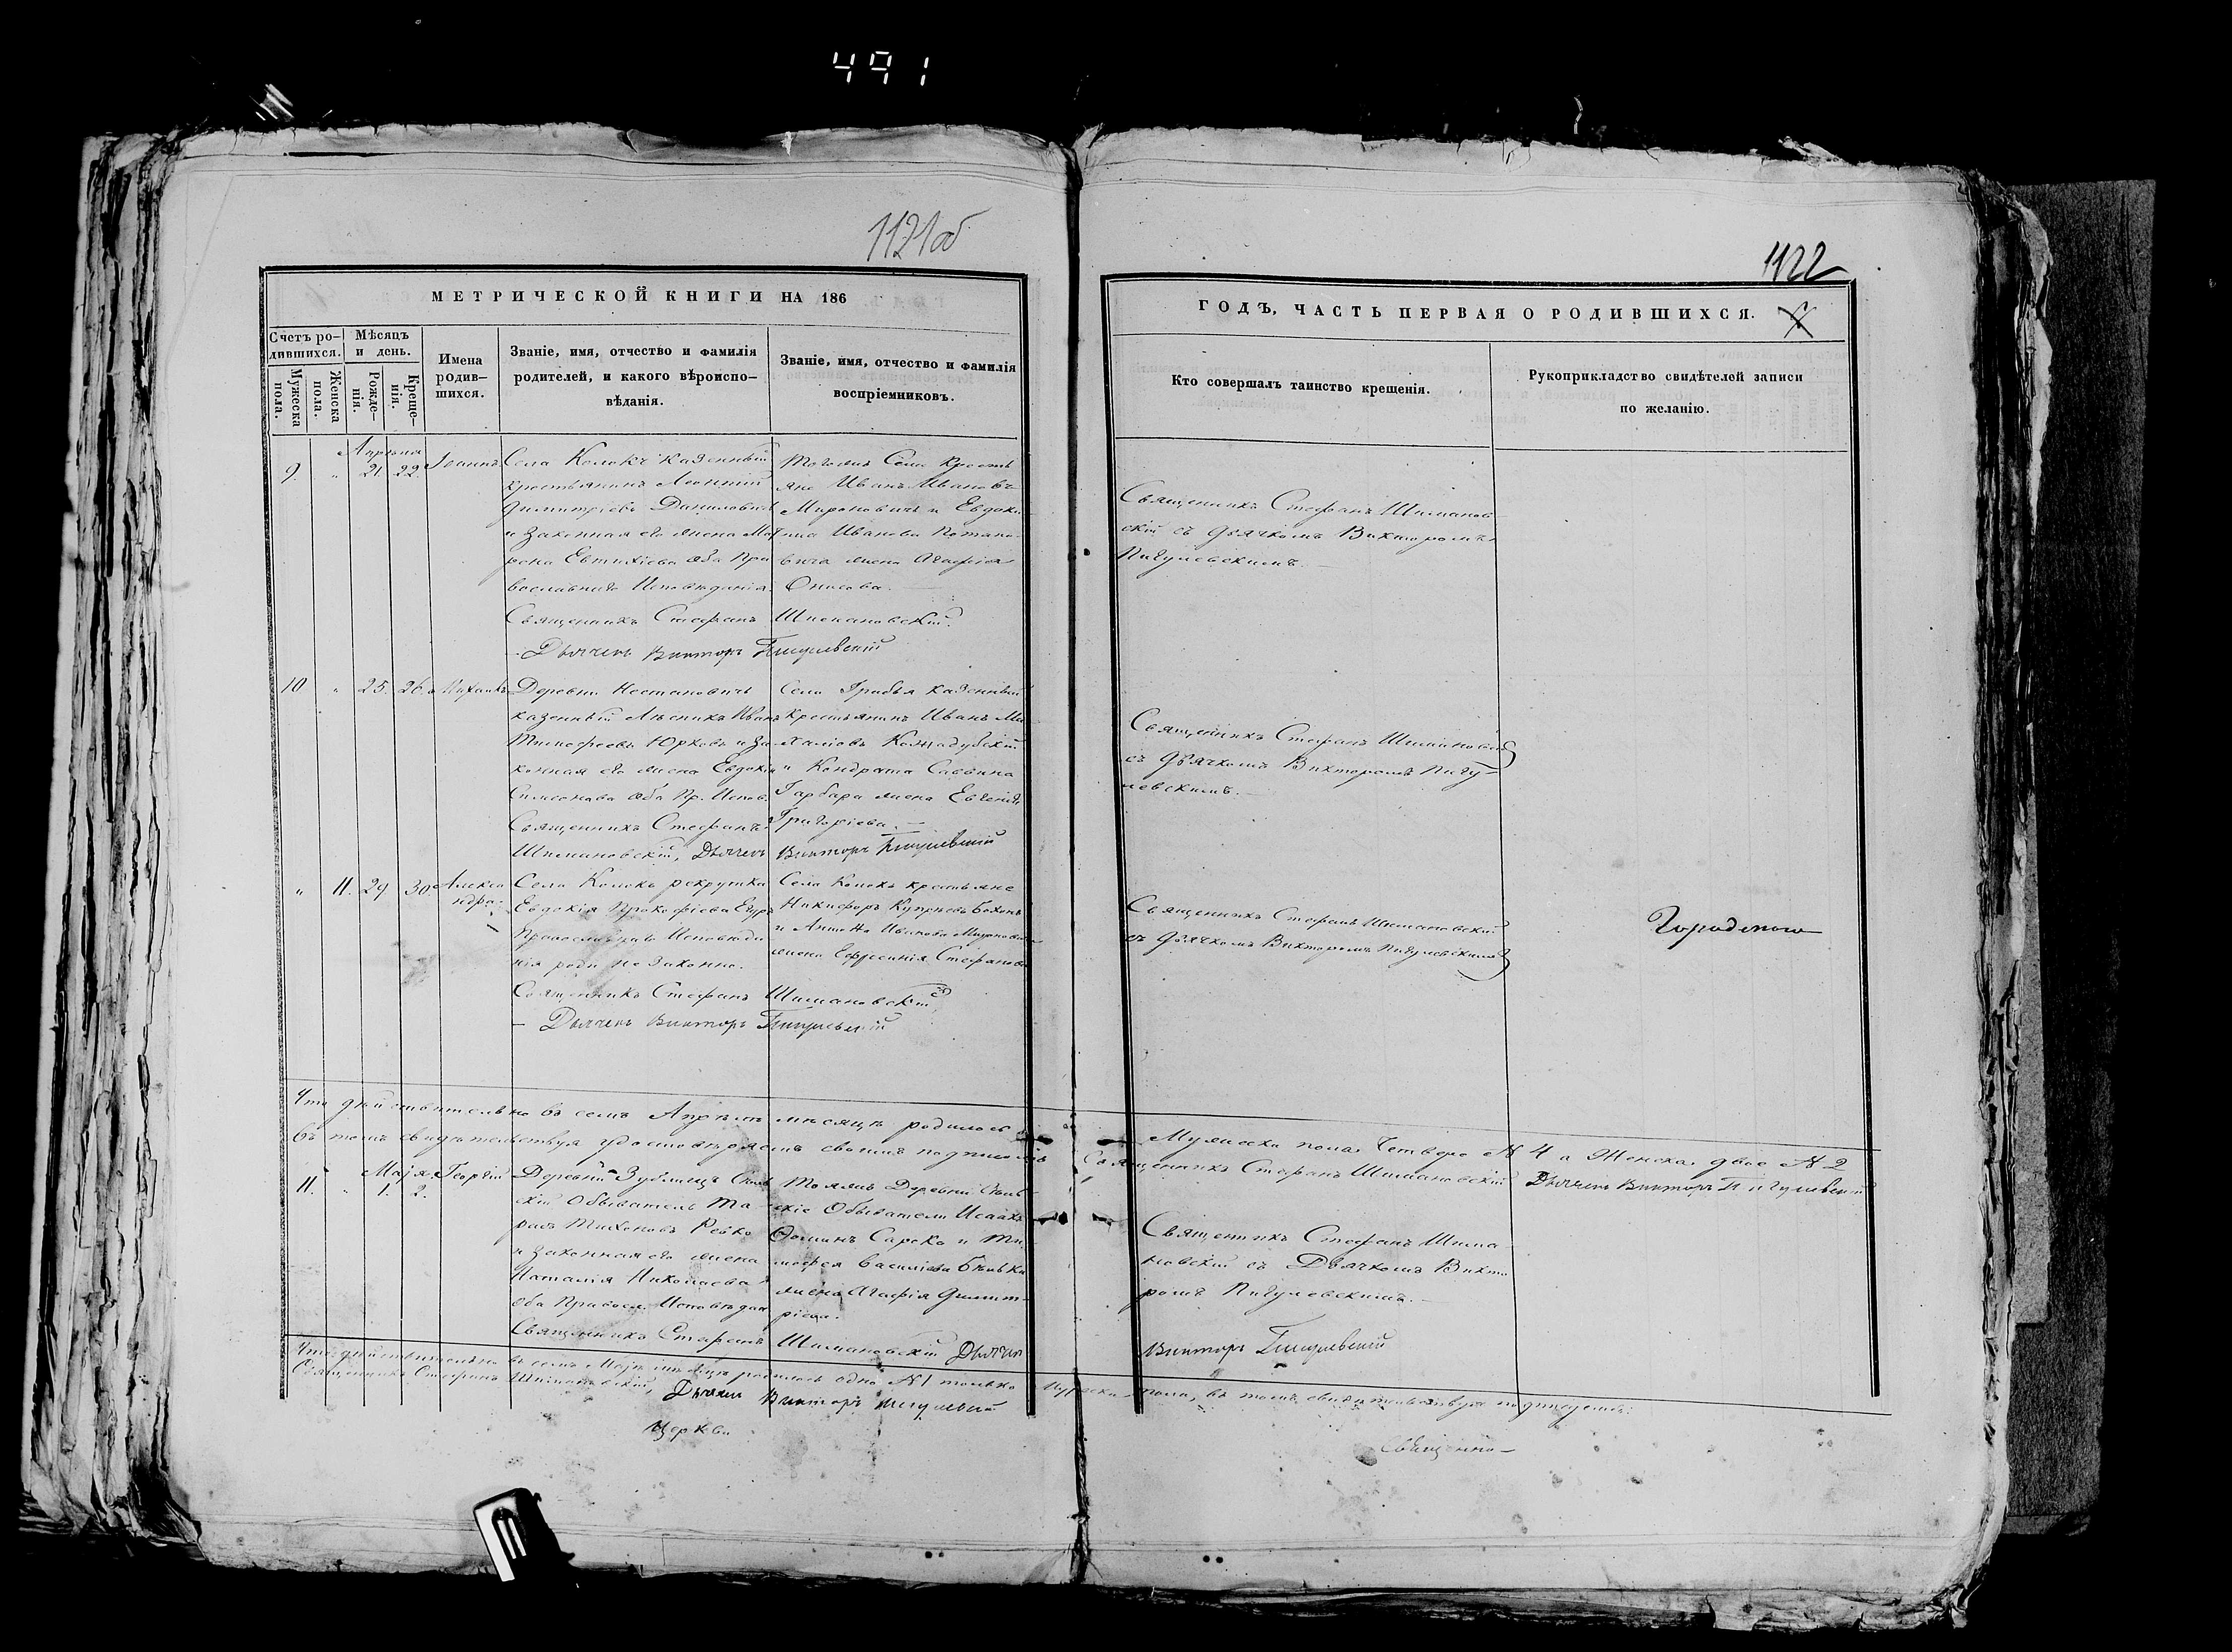 491
1121об
1122
МЕТРИЧЕСКОЙ КНИГИ НА 186
Счетъ ро-
дившихся.
Мужеска
пола.
Женска
пола.
Мѣсяцъ
и день.
Рожде-
нія.
Креще-
нія.
Имена
родив-
шихся.
Званіе, имя, отчество и фамилія
родителей, и какого вѣроиспо-
вѣданія.
Званіе, имя, отчество и фамилія
воспріемниковъ.
Апрѣля
9. " 21. 22. Іоаннъ
Села Колокъ казенный
крестьянинъ Леонтій
Димитріевъ Даниловичъ
и законная его жена Мат
рона Евтихіева оба Пра
вославнаго Исповѣданія.
Священникъ Стефанъ Шимановскій.
Дьячекъ Викторъ Пигулевскій
Тогожъ Села Крестья
яне Иванъ Ивановъ
Мироновичъ и Евдоки
ма Иванова Потапо
вича жена Агафія
10 " 25. 26.
Деревни
казенный Лѣсникъ Иванъ
Тимофеевъ Юрковъ и За
конная его жена Евдокія
Симеонова оба Пр. Испов.
Священникъ Стефанъ
Шимановскій, Дьячекъ Викторъ Пигулевскій
Села Грабья казенный
крестьянинъ Иванъ Ми
и Кондрата
Гарбара жена Евгенія
Григоріева.
" 11. 29 30. Алекса
ндра.
Села Колокъ рекрутка
Евдокія Прокофіева
Православнаго Исповѣда
нія родн. незаконно.
Священникъ Стефанъ Шимановскій
Дьячекъ Викторъ Пигулевскій
Села Колокъ крестьяне
Никифоръ
и Антона Иванова
жена Стефанова
Что дѣйствительно въ семъ Апрѣлѣ мѣсяцѣ родилось
въ томъ свидѣтельствуя удостовѣряемъ своимъ подписомъ
Маія
11. " 1. 2. Георгій
Деревни
скій Обыватель Та-
расъ Тихоновъ Ревко
и Законная его жена
Наталія Николаева
оба Правосл. Исповѣдан
Священникъ Стефанъ Шимановскій Дьячекъ
Тояжъ Деревни
скіе Обыватели Исаакъ
Ѳоминъ и Ти
мофея Василіева
жена Агафія Димит-
ріева.
Что дѣйствительно въ семъ Маѣ мѣсяцѣ родилось одно №1 только
Священникъ Стефанъ Шимановскій, Дьячекъ Викторъ Пигулевскій
Церкви
ГОДЪ, ЧАСТЬ ПЕРВАЯ О РОДИВШИХСЯ.
Кто совершалъ таинство крещенія.
Рукоприкладство свидѣтелей записи
по желанію.
Священникъ Стефанъ Шиманов
скій съ Дьячкомъ Викторомъ
Пигулевскимъ.
Священникъ Стефанъ Шимановскій
съ Дьячкомъ Викторомъ Пигу-
левскимъ.
Священникъ Стефанъ Шимановскій
съ Дьячкомъ Викторомъ Пигулевскимъ
Мужеска пола Четверо № 4 а Женска двое № 2
Священникъ Стефанъ Шимановскій Дьячекъ Викторъ Пигулевскій
Священникъ Стефанъ Шима
новскій съ Дьячкомъ Викто
ромъ Пигулевскимъ.
Викторъ Пигулевскій
Мужеска пола, въ томъ свидѣтельствуя подписуемъ.
Священно-